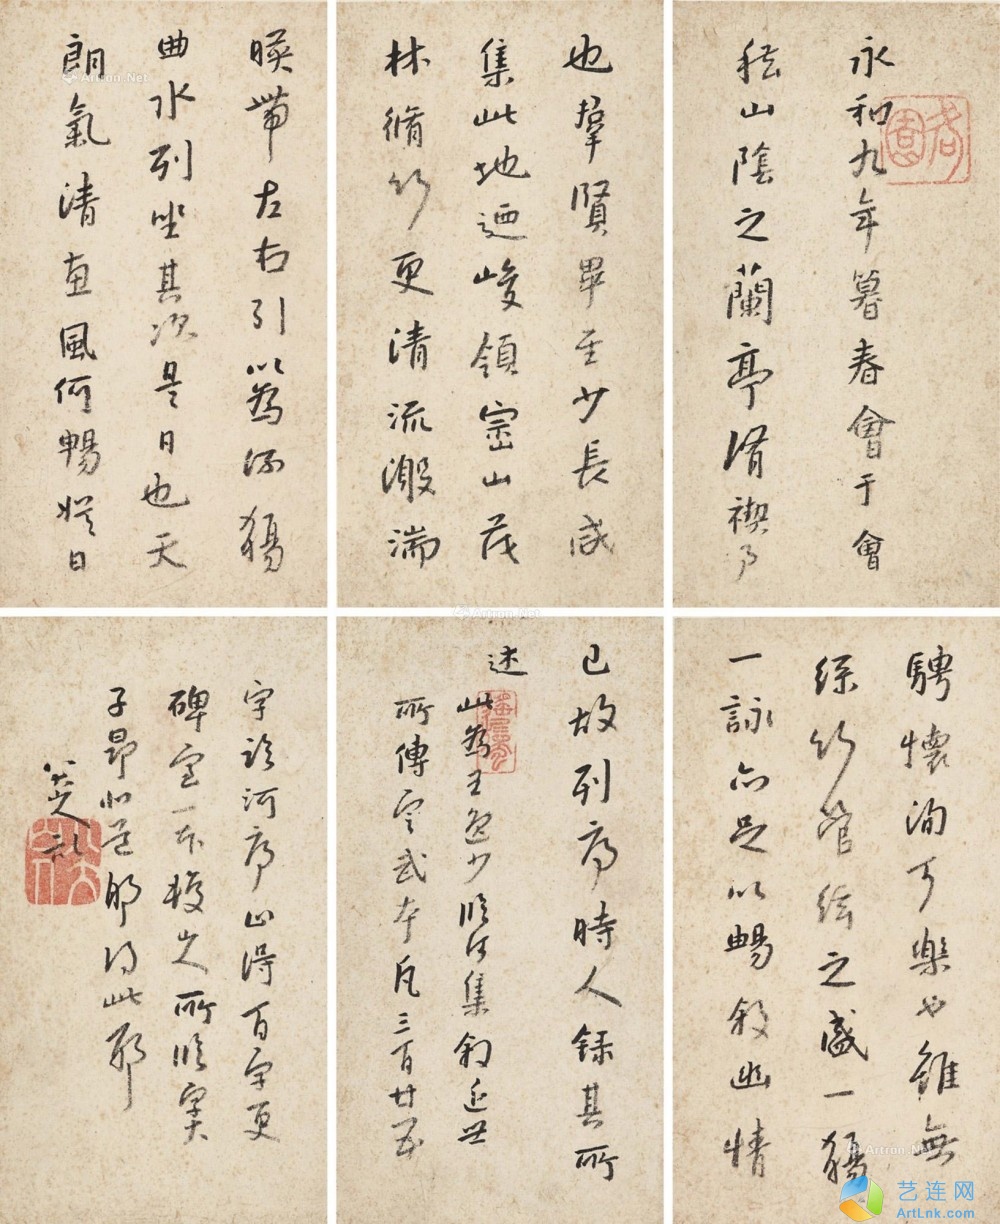 永和九年暮春會于會
嵇山陰之蘭亭脩禊事
也羣賢畢至少長咸
集此地迺峻領崇山茂
林脩竹更清流激湍
暎帶左右引以為流觴
曲水列坐其次是日也天
朗氣清惠風何暢娛目
騁懷洵可樂也雖無
絲竹管絃之盛一觴
一詠亦足以暢敘幽情
已故列序時人錄其所
述
此為王逸少臨河集敘近世
所傳定武本凡三百廿五
字臨河序止得百字更
碑一本所臨
子昂那得此耶
八大山人
Artron.Net
Artron.Net
Artron.Net
艺连网
ArtLnk.com